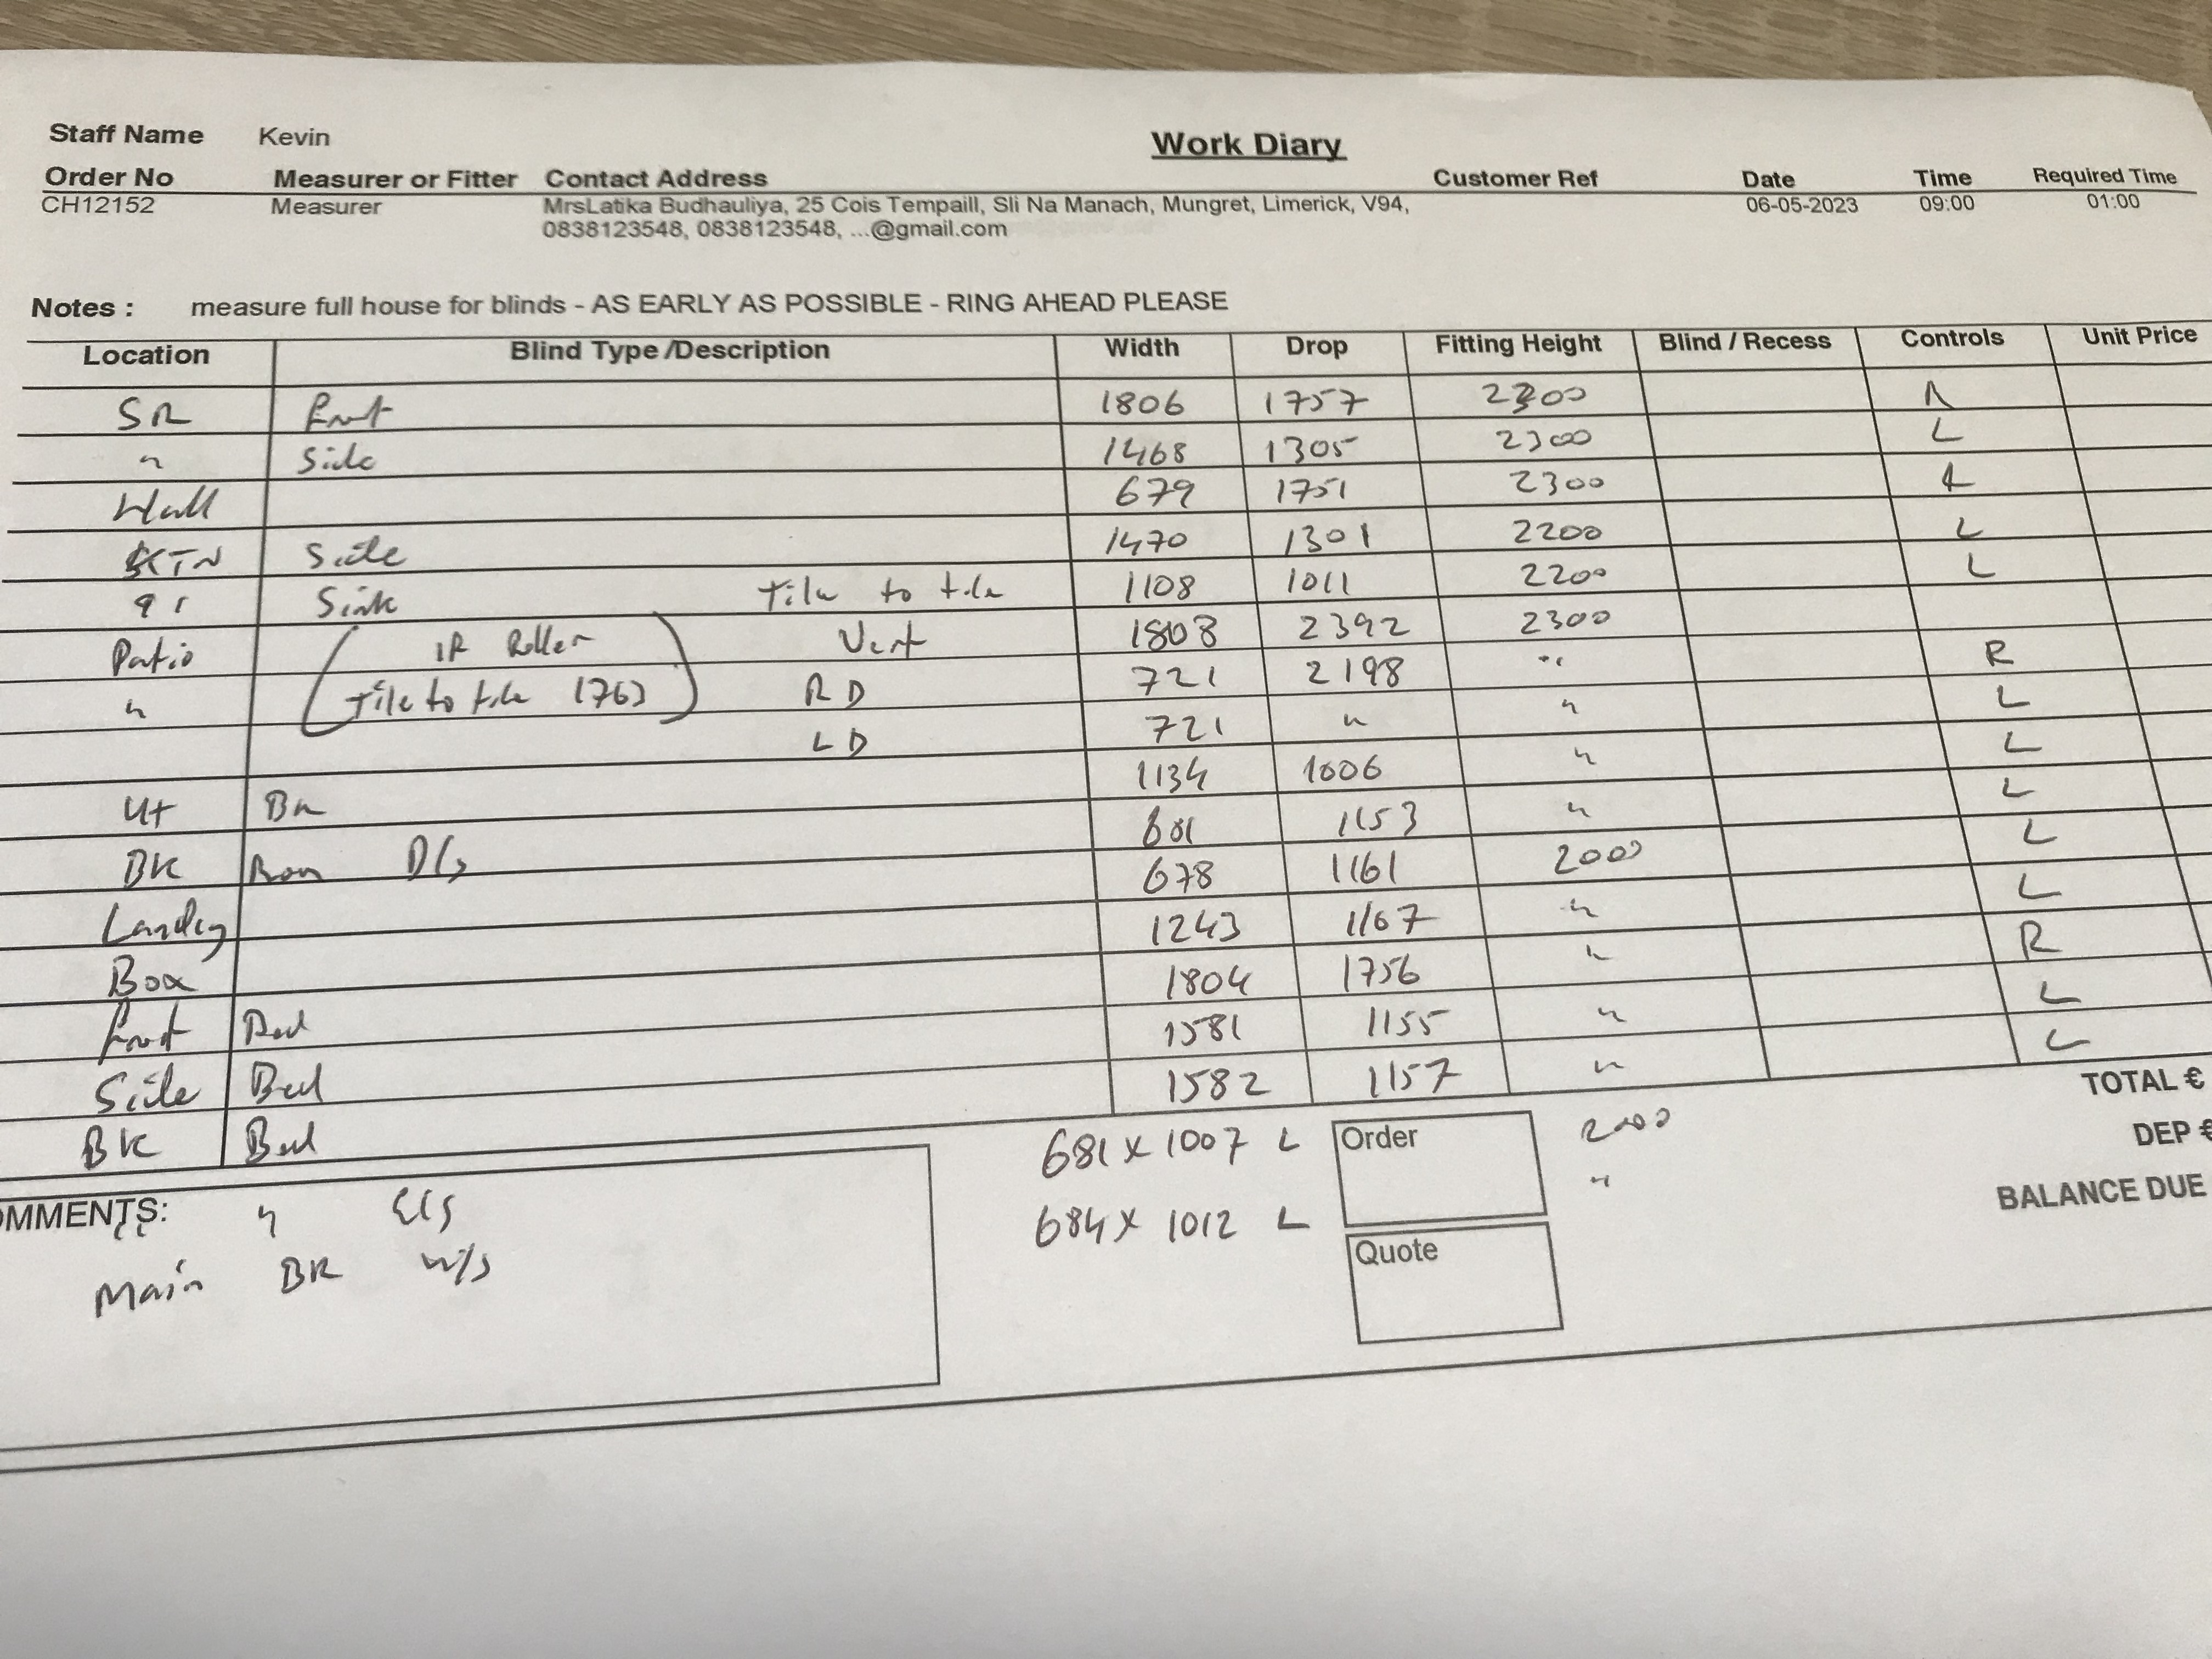 Staff Name Kevin
Work Diary
Order No Measurer or Fitter Contact Address Customer Ref Date Time Required Time
CH12152 Measurer MrsLatika Budhauliya, 25 Cois Tempaill, Sli Na Manach, Mungret, Limerick, V94, 06-05-2023 09:00 01:00
0838123548, 0838123548, ...@gmail.com
Notes : measure full house for blinds - AS EARLY AS POSSIBLE - RING AHEAD PLEASE
Location Blind Type /Description Width Drop Fitting Height Blind / Recess Controls Unit Price
SR Frnt 1806 1757 2300 R
" Side 1468 1305 2300 L
Hall 679 1751 2300
KTN Side 1470 1301 2200 L
" Sink Tile to tile 1108 1011 2200 L
Patio (IR Roller Vert 1808 2392 2300
" Tile to tile 1763) RD 721 2198 " R
LD 721 " " L
Ut 1134 1006 " L
BK D/s 801 1153 " L
Landig 678 1161 2000 L
Box 1243 1167 " L
Frnt Bed 1804 1756 " R
Side Bed 1581 1155 " L
BK Bed 1582 1157 " L
TOTAL €
COMMENTS: " E/S 681 x 1007 L Order 2000 DEP €
Main BR 684 x 1012 L " BALANCE DUE
Quote